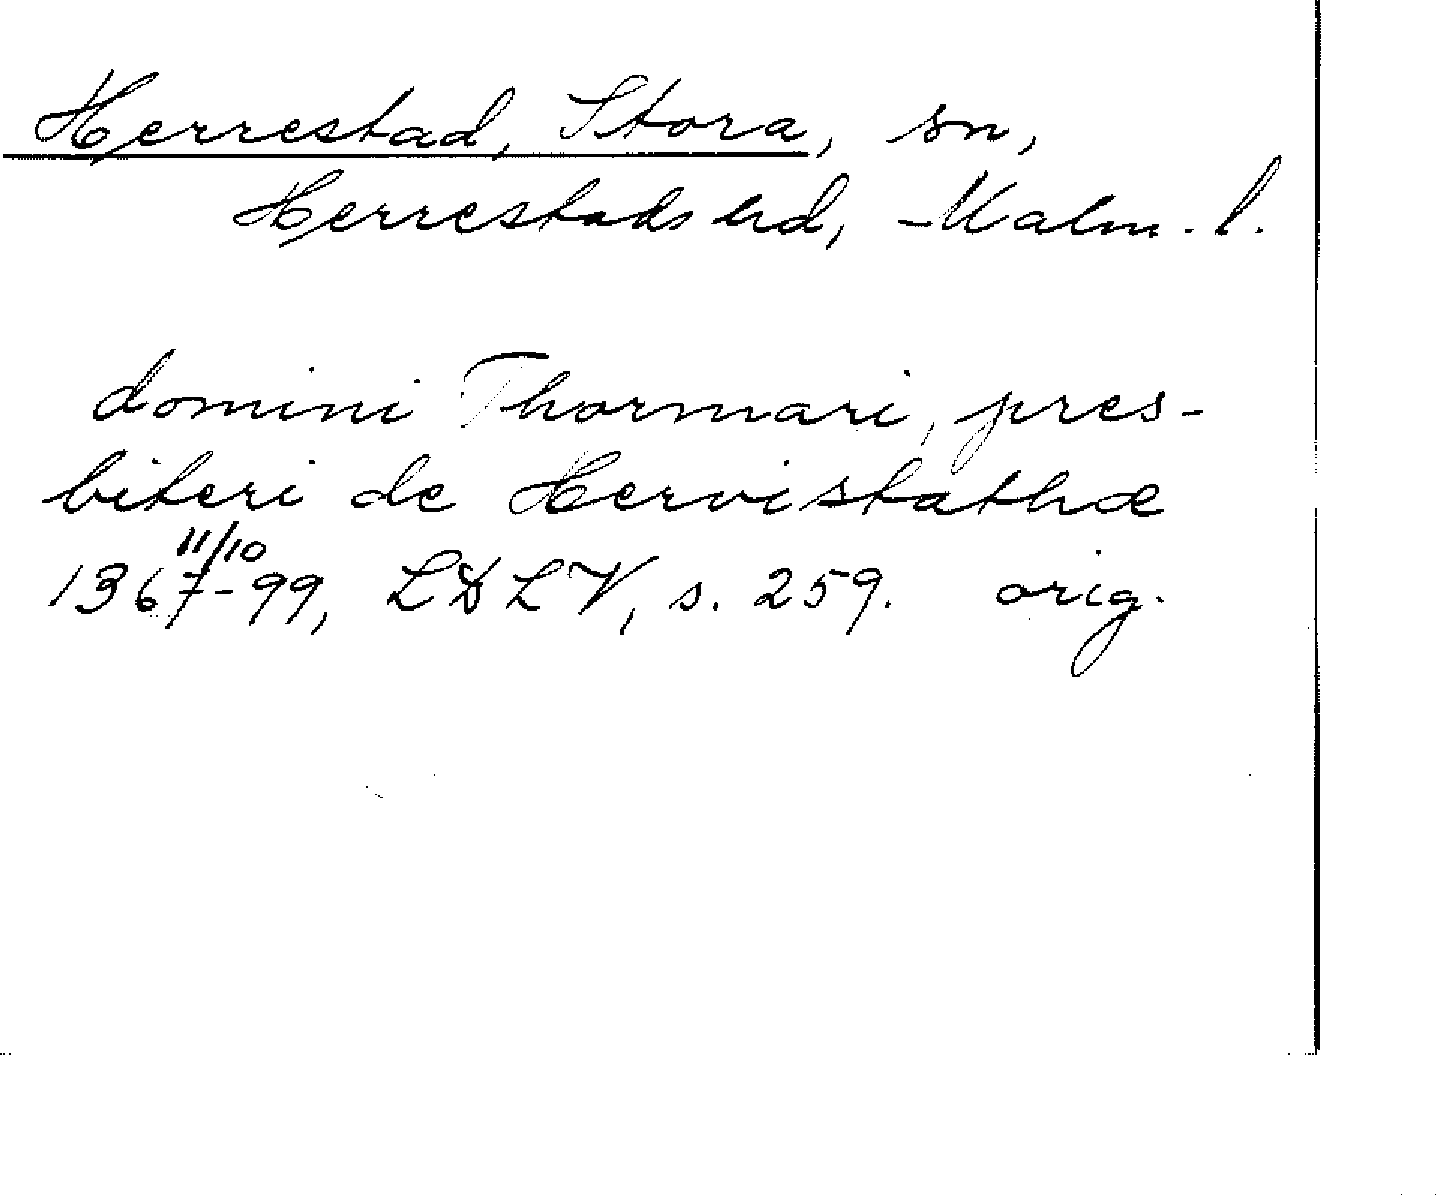 Herrestad, Stora, sn,
Herrestads hd, Malm. l.
domini Thormari, pres-
biteri de Hervistathæ
11/10
1367-99, LDLV, s. 259. orig.